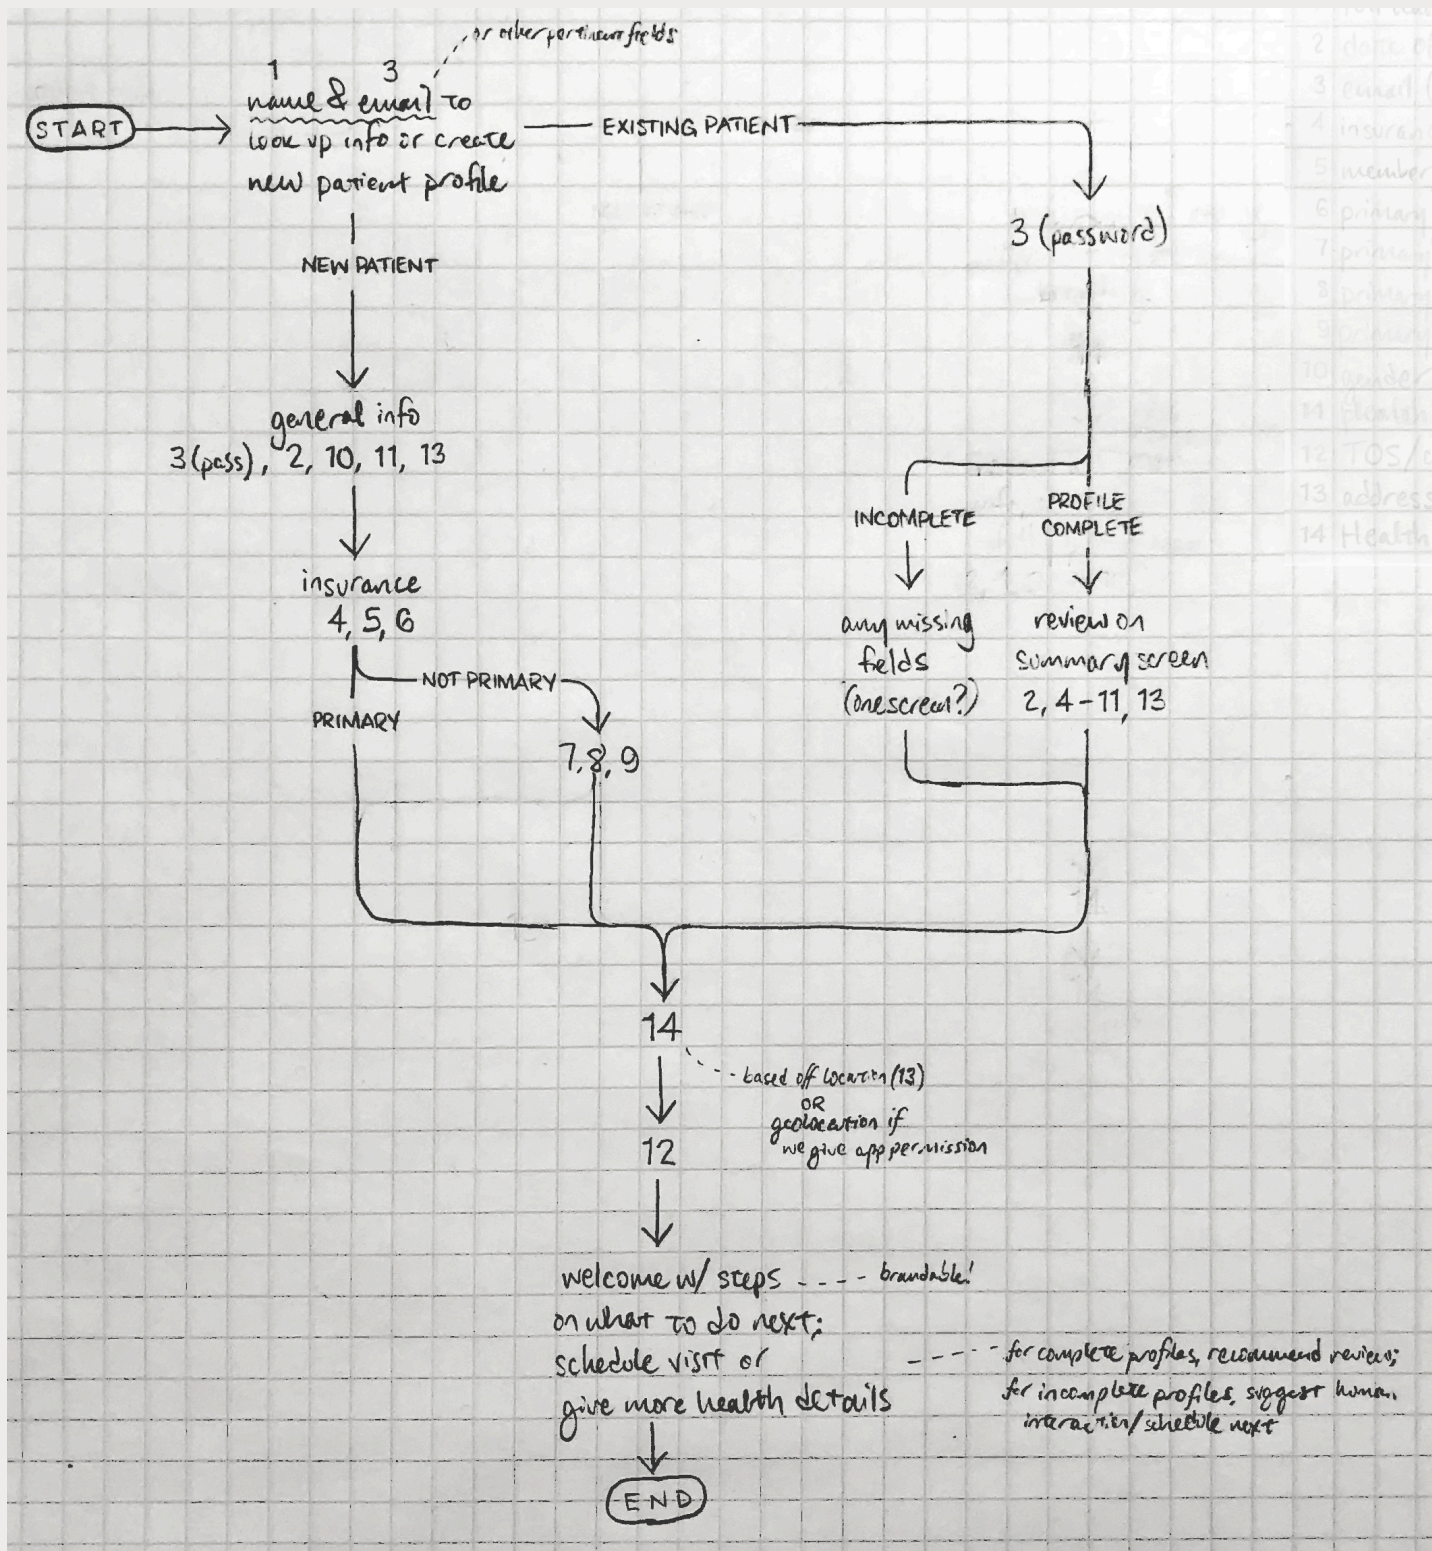 or other pertinent fields
1 3
name & email to
look up info or create
new patient profile
START
EXISTING PATIENT
NEW PATIENT
3 (password)
general info
3 (pass), 2, 10, 11, 13
INCOMPLETE
PROFILE
COMPLETE
insurance
4, 5, 6
NOT PRIMARY
PRIMARY
7, 8, 9
any missing
fields
(one screen?)
review on
summary screen
2, 4-11, 13
14
based off location (13)
OR
geolocation if
we give app permission
12
welcome w/ steps
brandable!
on what to do next:
schedule visit or
give more health details
for complete profiles, recommend review;
for incomplete profiles, suggest human
interaction/schedule next
END
2
3 email
4 insuran
5 member
6 primary
7 primary
8 primary
9 primary
10 gender
11 Health
12 TOS/
13 address
14 Health